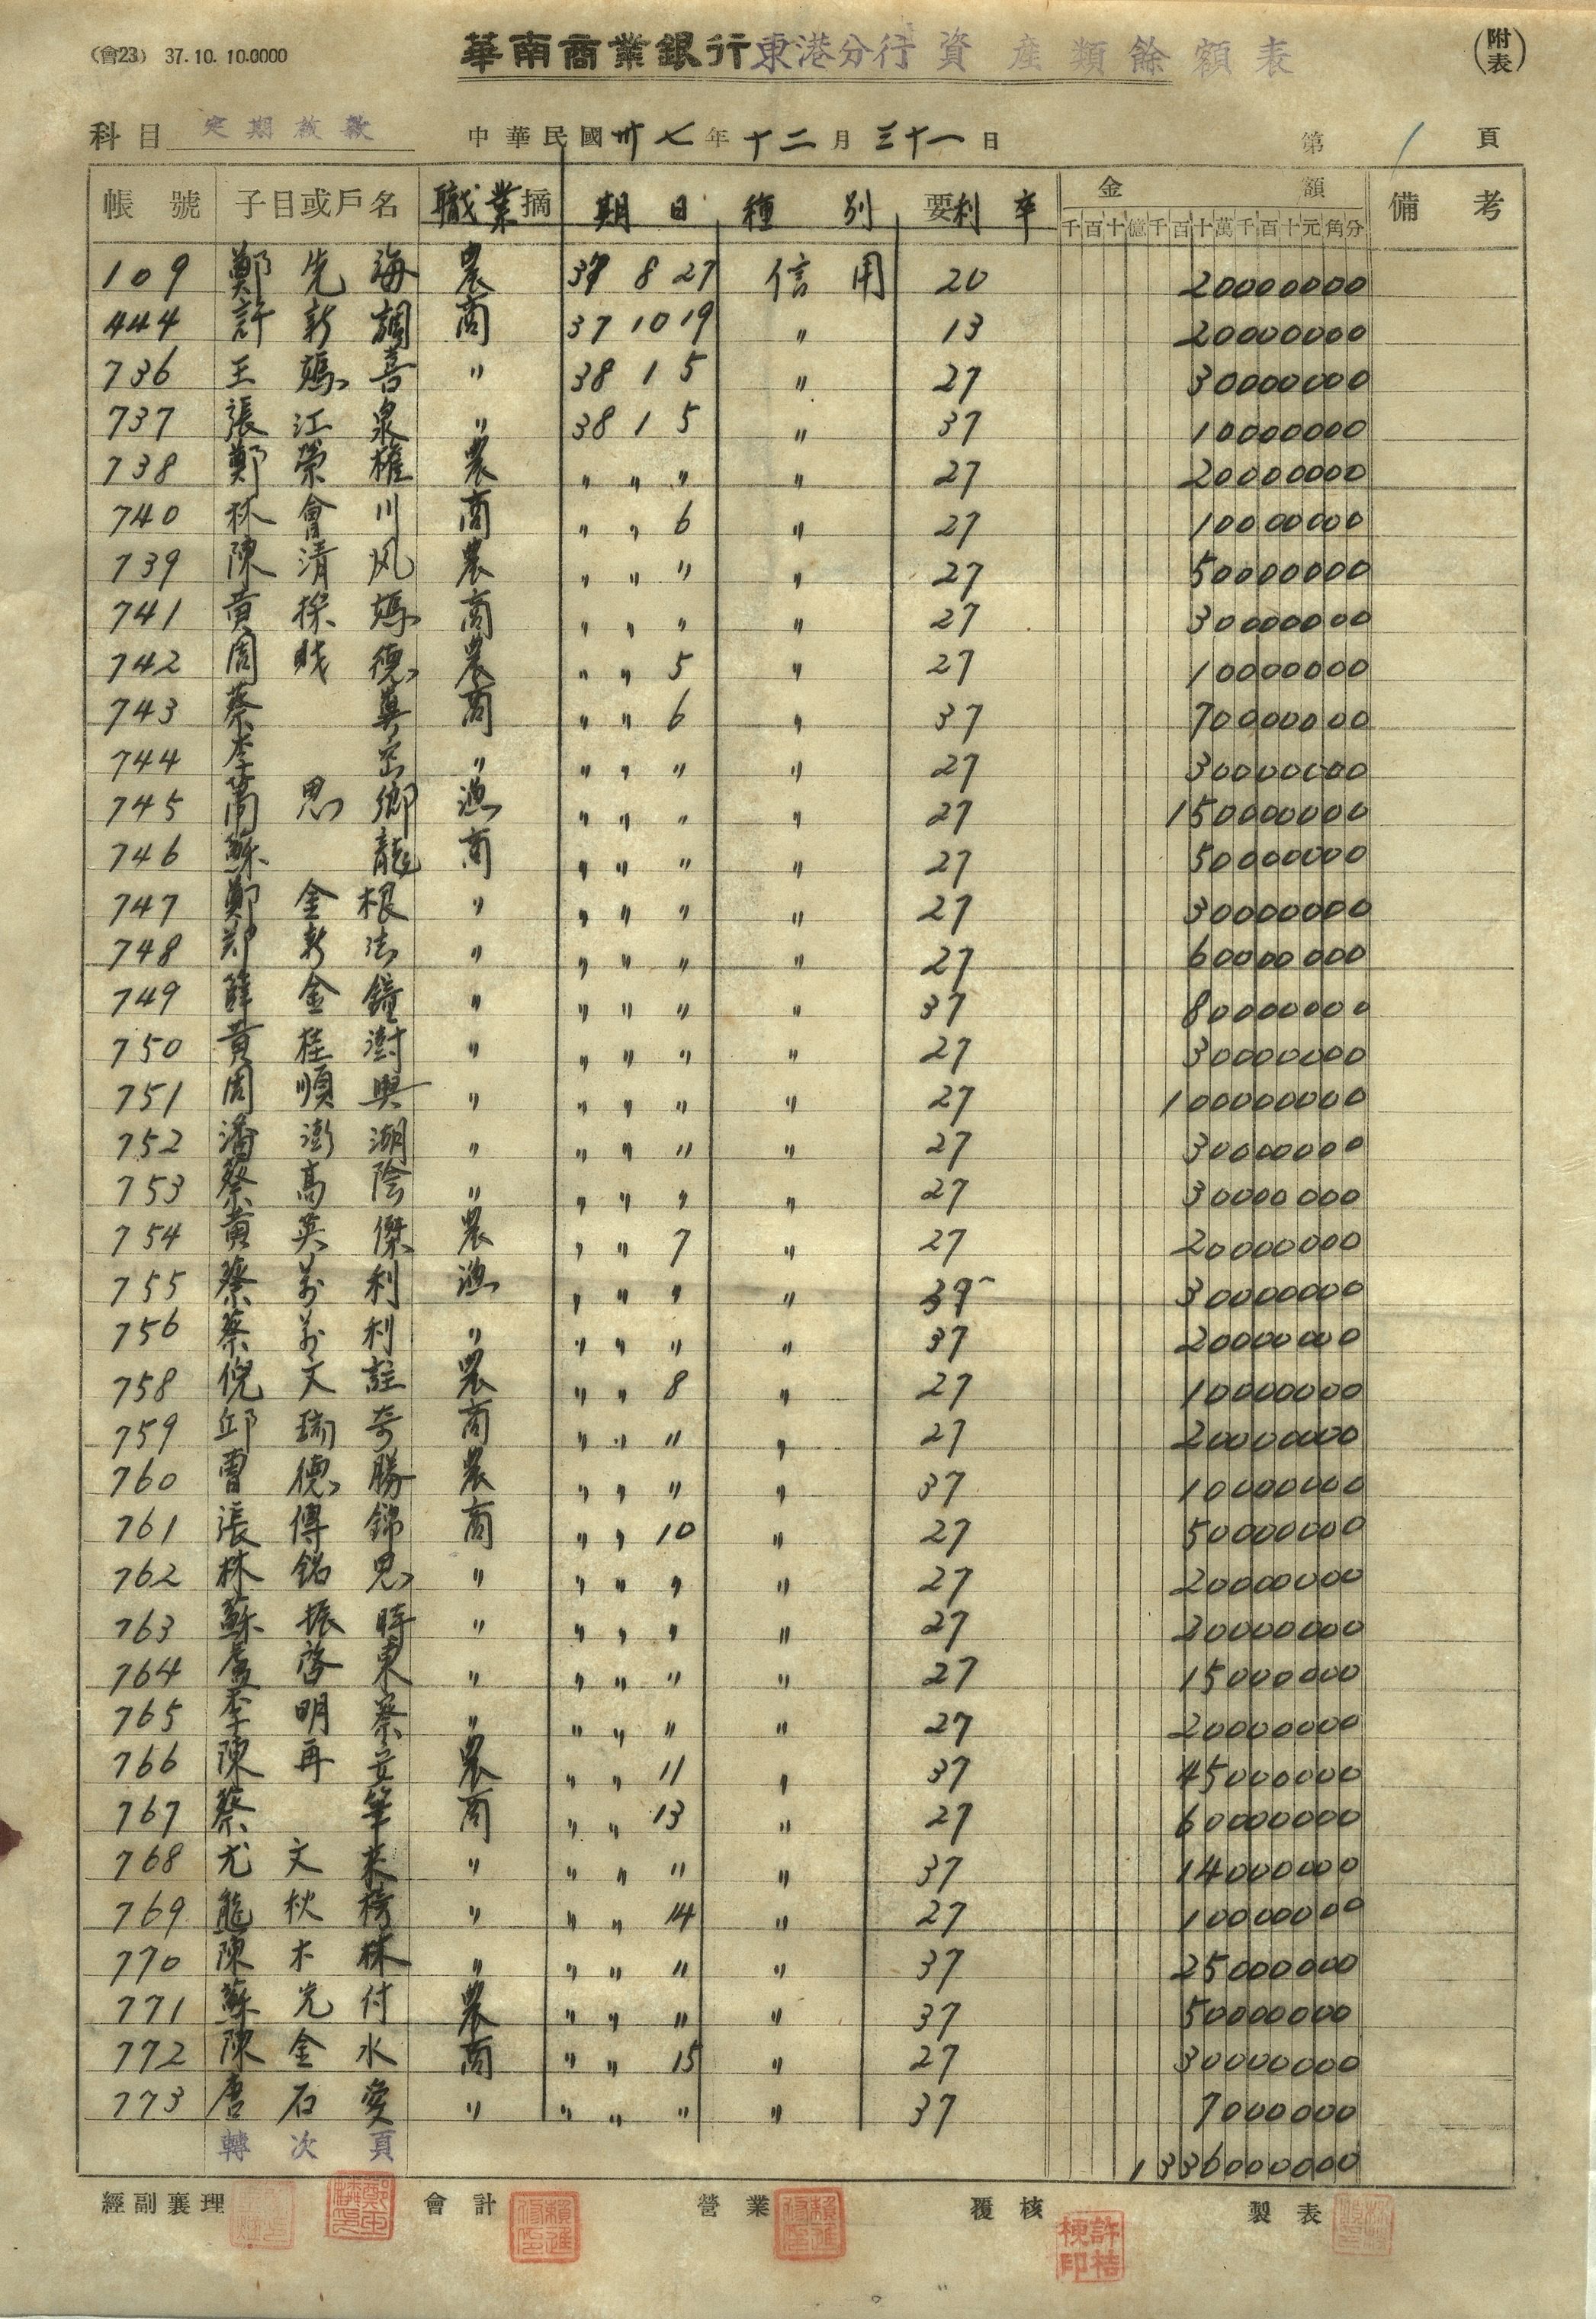 (會23) 37.10.10.0000
華南商業銀行東港分行資產類餘額表
(附表)
科目 定期放款 中華民國卅七年十二月三十一日 第1頁
帳號 子目或戶名 職業摘 期日 種別 要利率 金額 備考
千百十億千百十萬千百十元角分
109 鄭先海 農 37 8 27 信用 20 20000000
444 許新調 商 37 10 19 〃 13 20000000
736 王媽喜 〃 38 1 5 〃 27 30000000
737 張江泉 〃 38 1 5 〃 37 10000000
738 鄭榮權 農 〃 〃 〃 〃 27 20000000
740 林會川 商 〃 〃 6 〃 27 10000000
739 陳清风 農 〃 〃 〃 〃 27 50000000
741 黄採媽 商 〃 〃 〃 〃 27 30000000
742 周賤德 農 〃 〃 5 〃 27 10000000
743 蔡 商 〃 〃 6 〃 37 70000000
744 李 〃 〃 〃 〃 〃 27 30000000
745 萬思鄉 漁 〃 〃 〃 〃 27 150000000
746 蘇龍 商 〃 〃 〃 〃 27 50000000
747 鄭金根 〃 〃 〃 〃 〃 27 30000000
748 郑新法 〃 〃 〃 〃 〃 27 60000000
749 薛金鐘 〃 〃 〃 〃 〃 37 80000000
750 黄桂澍 〃 〃 〃 〃 〃 27 30000000
751 周順興 〃 〃 〃 〃 〃 27 100000000
752 潘澎湖 〃 〃 〃 〃 〃 27 30000000
753 蔡高陰 〃 〃 〃 〃 〃 27 30000000
754 黄英傑 農 〃 〃 7 〃 27 20000000
755 蔡万利 漁 〃 〃 〃 〃 37 30000000
756 蔡万利 〃 〃 〃 〃 〃 37 20000000
758 倪文註 農 〃 〃 8 〃 27 10000000
759 邱瑞奇 商 〃 〃 〃 〃 27 20000000
760 曹德勝 農 〃 〃 〃 〃 37 10000000
761 張傳錦 商 〃 〃 10 〃 27 50000000
762 林銘思 〃 〃 〃 〃 〃 27 20000000
763 蘇振時 〃 〃 〃 〃 〃 27 20000000
764 盧啓東 〃 〃 〃 〃 〃 27 15000000
765 李明察 〃 〃 〃 〃 〃 27 20000000
766 陳再立 農 〃 〃 11 〃 37 45000000
767 蔡笨 商 〃 〃 13 〃 27 60000000
768 尤文來 〃 〃 〃 〃 〃 37 14000000
769 龍秋 〃 〃 〃 14 〃 27 10000000
770 陳木林 〃 〃 〃 〃 〃 37 25000000
771 蘇光付 農 〃 〃 〃 〃 37 50000000
772 陳金水 商 〃 〃 15 〃 27 30000000
773 唐石愛 〃 〃 〃 〃 〃 37 7000000
轉次頁 1336000000
經副襄理 會計 營業 覆核 許桔梗印 製表